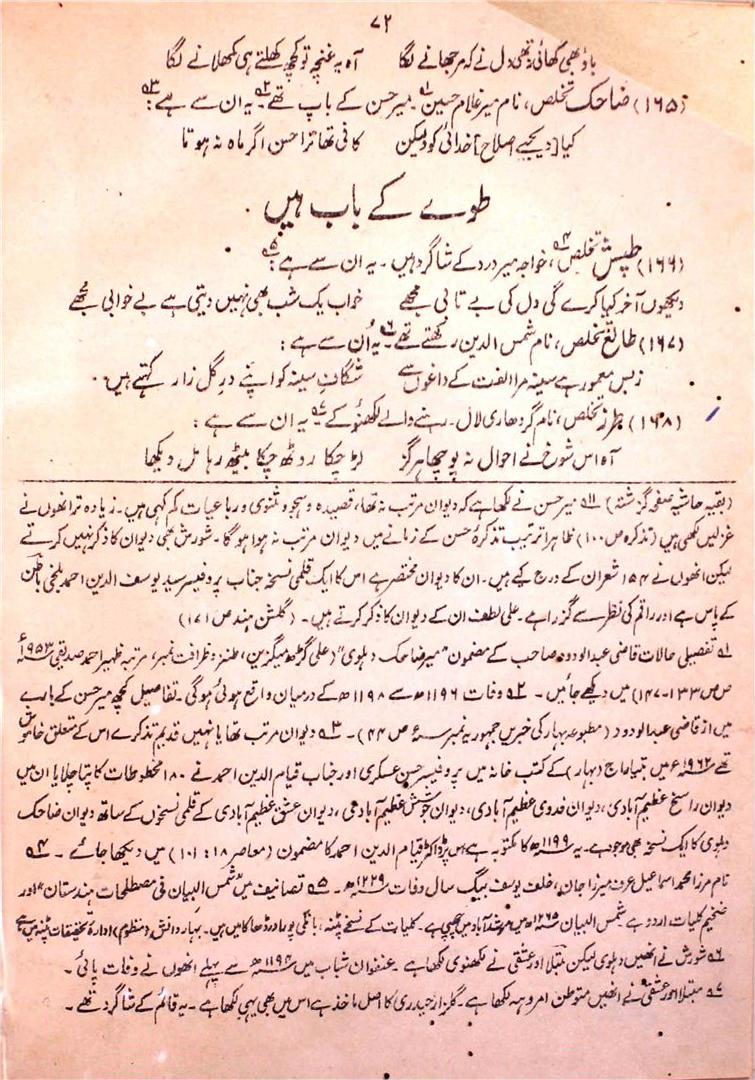 ۷۲
باؤ بھی کھائی نہ تھی دل نے کہ مرجھانے لگا آہ یہ غنچہ تو کچھ کھلتے ہی کمھلانے لگا
(۱۶۵) ضاحک تخلص، نام میر غلام حسین ۱؎ میر حسن کے باپ تھے ۲؎ یہ ان سے ہے ۳؎ :
کیا [دیجیے اصلاح] خدائی کو ولیکن کافی تھا ترا حسن اگر ماہ نہ ہوتا
طوے کے باب میں
(۱۶۶) طپش تخلص ۴؎، خواجہ میر درد کے شاگرد ہیں۔ یہ ان سے ہے ۵؎ :
دیکھوں آخر کیا کرے گی دل کی بے تابی مجھے خواب یک شب بھی نہیں دیتی ہے بے خوابی مجھے
(۱۶۷) طالع تخلص، نام شمس الدین رکھتے تھے ۶؎ یہ اُن سے ہے :
زبس معمور ہے سینہ مرا الفت کے داغوں سے شگافِ سینہ کو اپنے درِ گل زار کہتے ہیں
(۱۶۸) طرز تخلص، نام گردھاری لال۔ رہنے والے لکھنؤ کے ۷؎ یہ ان سے ہے :
آہ اس شوخ نے احوال نہ پوچھا ہرگز لڑ چکا روٹھ چکا بیٹھ رہا مل دیکھا
(بقیہ حاشیہ صفحہ گزشتہ) ۱۱؎ میر حسن نے لکھا ہے کہ دیوان مرتب نہ تھا، قصیدہ و ہجو و مثنوی و رباعیات کم کہی ہیں۔ زیادہ تر انھوں نے
غزلیں لکھی ہیں (تذکرہ ص ۱۰۰) ظاہرا ترتیب تذکرۂ حسن کے زمانے میں دیوان مرتب نہ ہوا ہو گا۔ شورش بھی دیوان کا ذکر نہیں کرتے
لیکن انھوں نے ۱۵۴ شعر ان کے درج کیے ہیں۔ ان کا دیوان مختصر ہے اس کا ایک قلمی نسخہ جناب پروفیسر سید یوسف الدین احمد بلخی باطن
کے پاس ہے اور راقم کی نظر سے گزرا ہے۔ علی لطف ان کے دیوان کا ذکر کرتے ہیں۔ (گلشن ہند ص ۱۷۱)
۱؎ تفصیلی حالات قاضی عبدالودود صاحب کے مضمون "میر ضاحک دہلوی" (علی گڑھ میگزین، طنز و ظرافت نمبر، مرتبہ ظہیر احمد صدیقی ۱۹۵۳ء
ص ص ۱۳۳-۱۴۷) میں دیکھے جائیں۔ ۲؎ وفات ۱۱۹۶ھ سے ۱۱۹۸ھ کے درمیان واقع ہوئی ہو گی۔ تفاصیل کچھ میر حسن کے بارے
میں از قاضی عبدالودود (مطبوعہ بہار کی خبریں جمہوریہ نمبر ص ۴۴)۔ ۳؎ دیوان مرتب تھا یا نہیں قدیم تذکرے اس کے متعلق خاموش
تھے ۱۹۶۲ء میں بتیا راج (بہار) کے کتب خانہ میں پروفیسر حسن عسکری اور جناب قیام الدین احمد نے ۱۸۰ مخطوطات کا پتا چلایا ان میں
دیوان راسخ عظیم آبادی، دیوان فدوی عظیم آبادی، دیوان جوشش عظیم آبادی، دیوان عشق عظیم آبادی کے قلمی نسخوں کے ساتھ دیوان ضاحک
دہلوی کا ایک نسخہ بھی موجود ہے۔ یہ ۱۱۹۹ھ کا مکتوبہ ہے اس پر ڈاکٹر قیام الدین احمد کا مضمون (معاصر ۱۸:۱۰۱) میں دیکھا جائے۔ ۴؎
نام مرزا محمد اسماعیل عرف میرزا جان، خلف یوسف بیگ سال وفات ۱۲۲۹ھ۔ ۵؎ تصانیف میں شمس البیان فی مصطلحات ہندستان اور
ضخیم کلیات اردو ہے شمس البیان ۱۲۶۵ھ میں مرشدآباد میں چھپی ہے۔ کلیات کے نسخے پٹنہ، بانکی پور اور ڈھاکا میں ہیں۔ بہار دانش (منظوم) ادارہ تحقیقات پٹنہ میں ہے
۶؎ شورش نے انھیں دہلوی لیکن مبتلا اور عشقی نے لکھنوی لکھا ہے۔ عنفوان شباب میں ۱۱۹۴ھ سے پہلے انھوں نے وفات پائی۔
۷؎ مبتلا اور عشقی نے انھیں متوطن امروہہ لکھا ہے۔ گلزار حیدری کا اصل ماخذ ہے اس میں بھی یہی لکھا ہے۔ یہ قائم کے شاگرد تھے۔